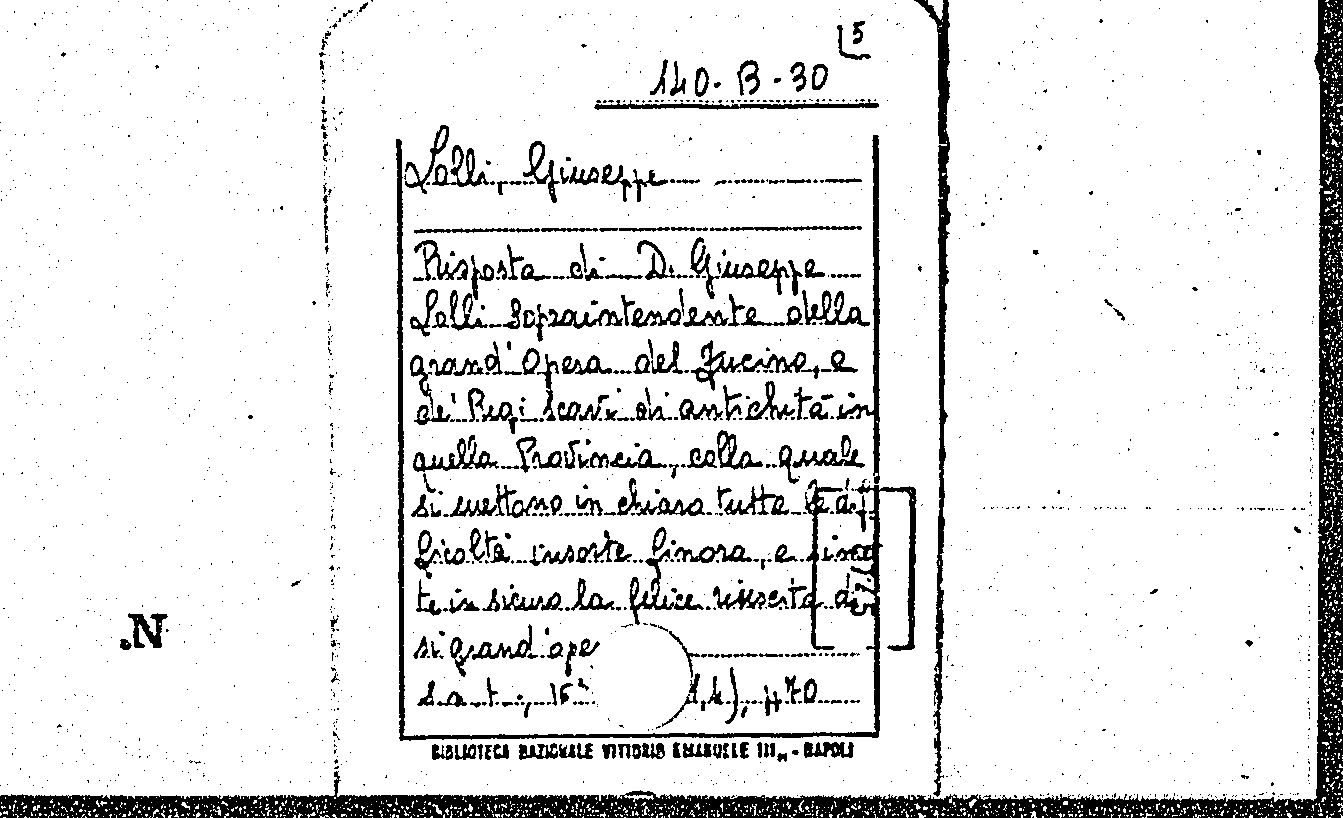 5
140-B-30
Lolli, Giuseppe
Risposta di D. Giuseppe
Lolli Sopraintendente della
grand'Opera del Fucino, e
de' Regi scavi di antichità in
quella Provincia, colla quale
si mettono in chiaro tutte le dif
ficoltà insorte finora, e si
te in sicuro la felice riuscita di
si grand'ope
s.a.t., 16°
), p. 70
.N
BIBLIOTECA NAZIONALE VITTORIO EMANUELE III - NAPOLI